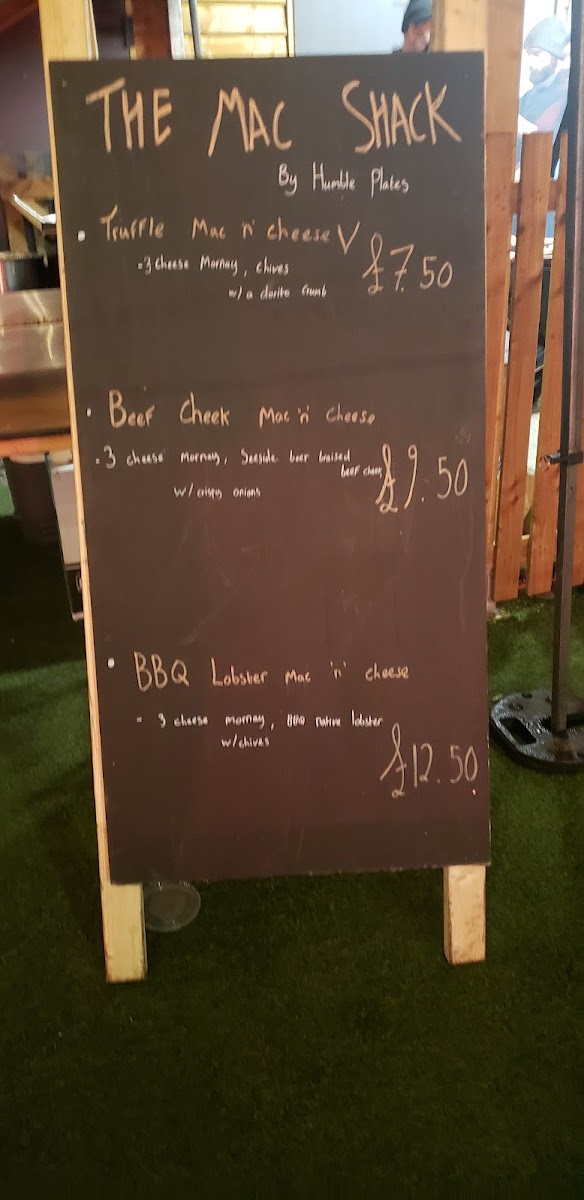 THE MAC SHACK
By Humble Plates
• Truffle Mac n' cheese V
- 3 cheese Mornay, chives
w/ a dorito crumb
£7.50
• Beef Cheek Mac 'n' Cheese
- 3 cheese mornay, Seeside beer braised
beef cheek
w/ crispy onions
£9.50
• BBQ Lobster Mac 'n' Cheese
- 3 cheese mornay, BBQ native lobster
w/chives
£12.50